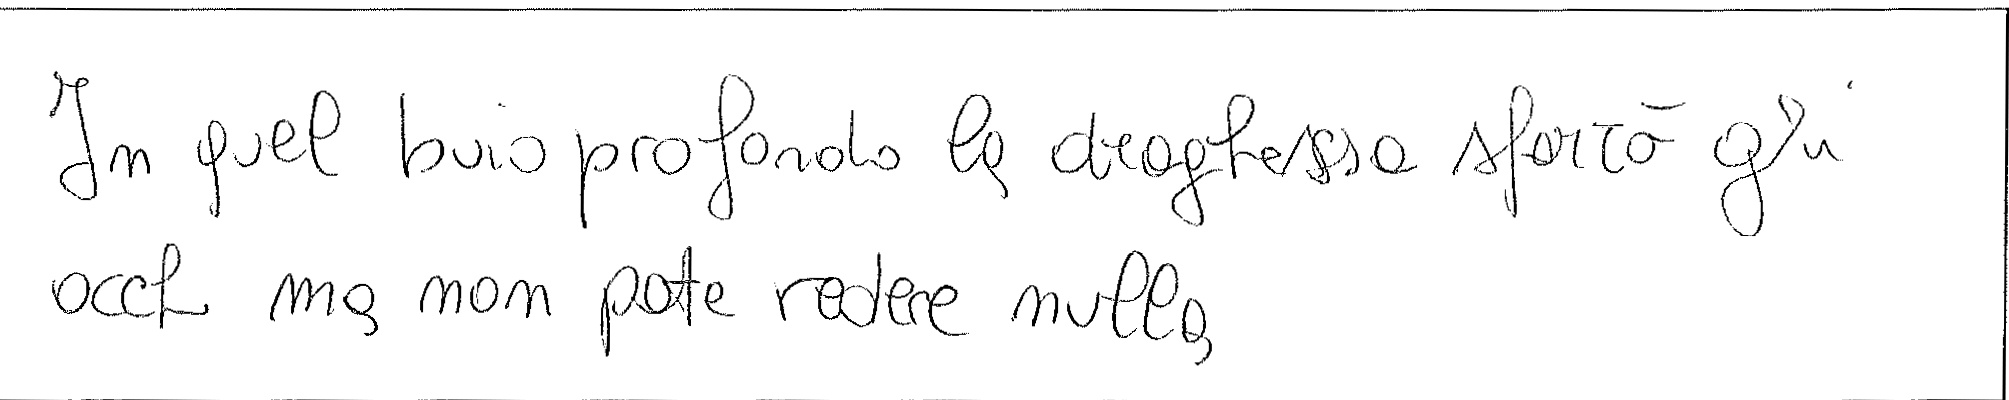 In quel buio profondo la draghessa sforzò gli
occhi ma non pote vedere nulla